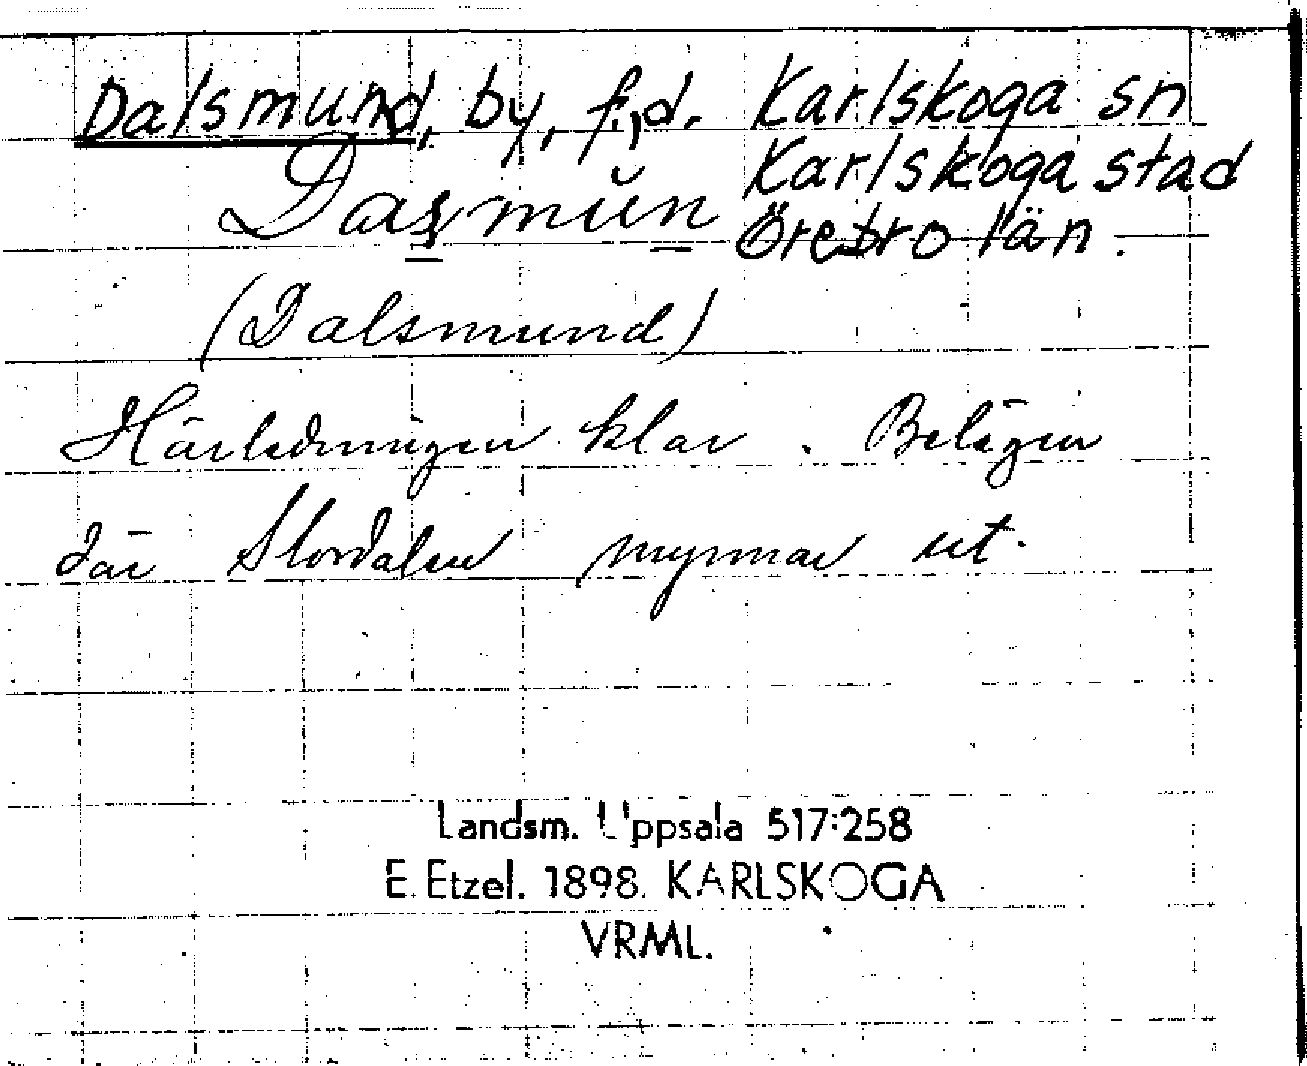 Dalsmund, by, f.d. Karlskoga sn
Karlskoga stad
Örebro län.
Dasmŭn
(Dalsmund)
Härledningen klar. Belägen
där Stordalen mynnar ut.
Landsm. Uppsala 517:258
E. Etzel. 1898. KARLSKOGA
VRML.